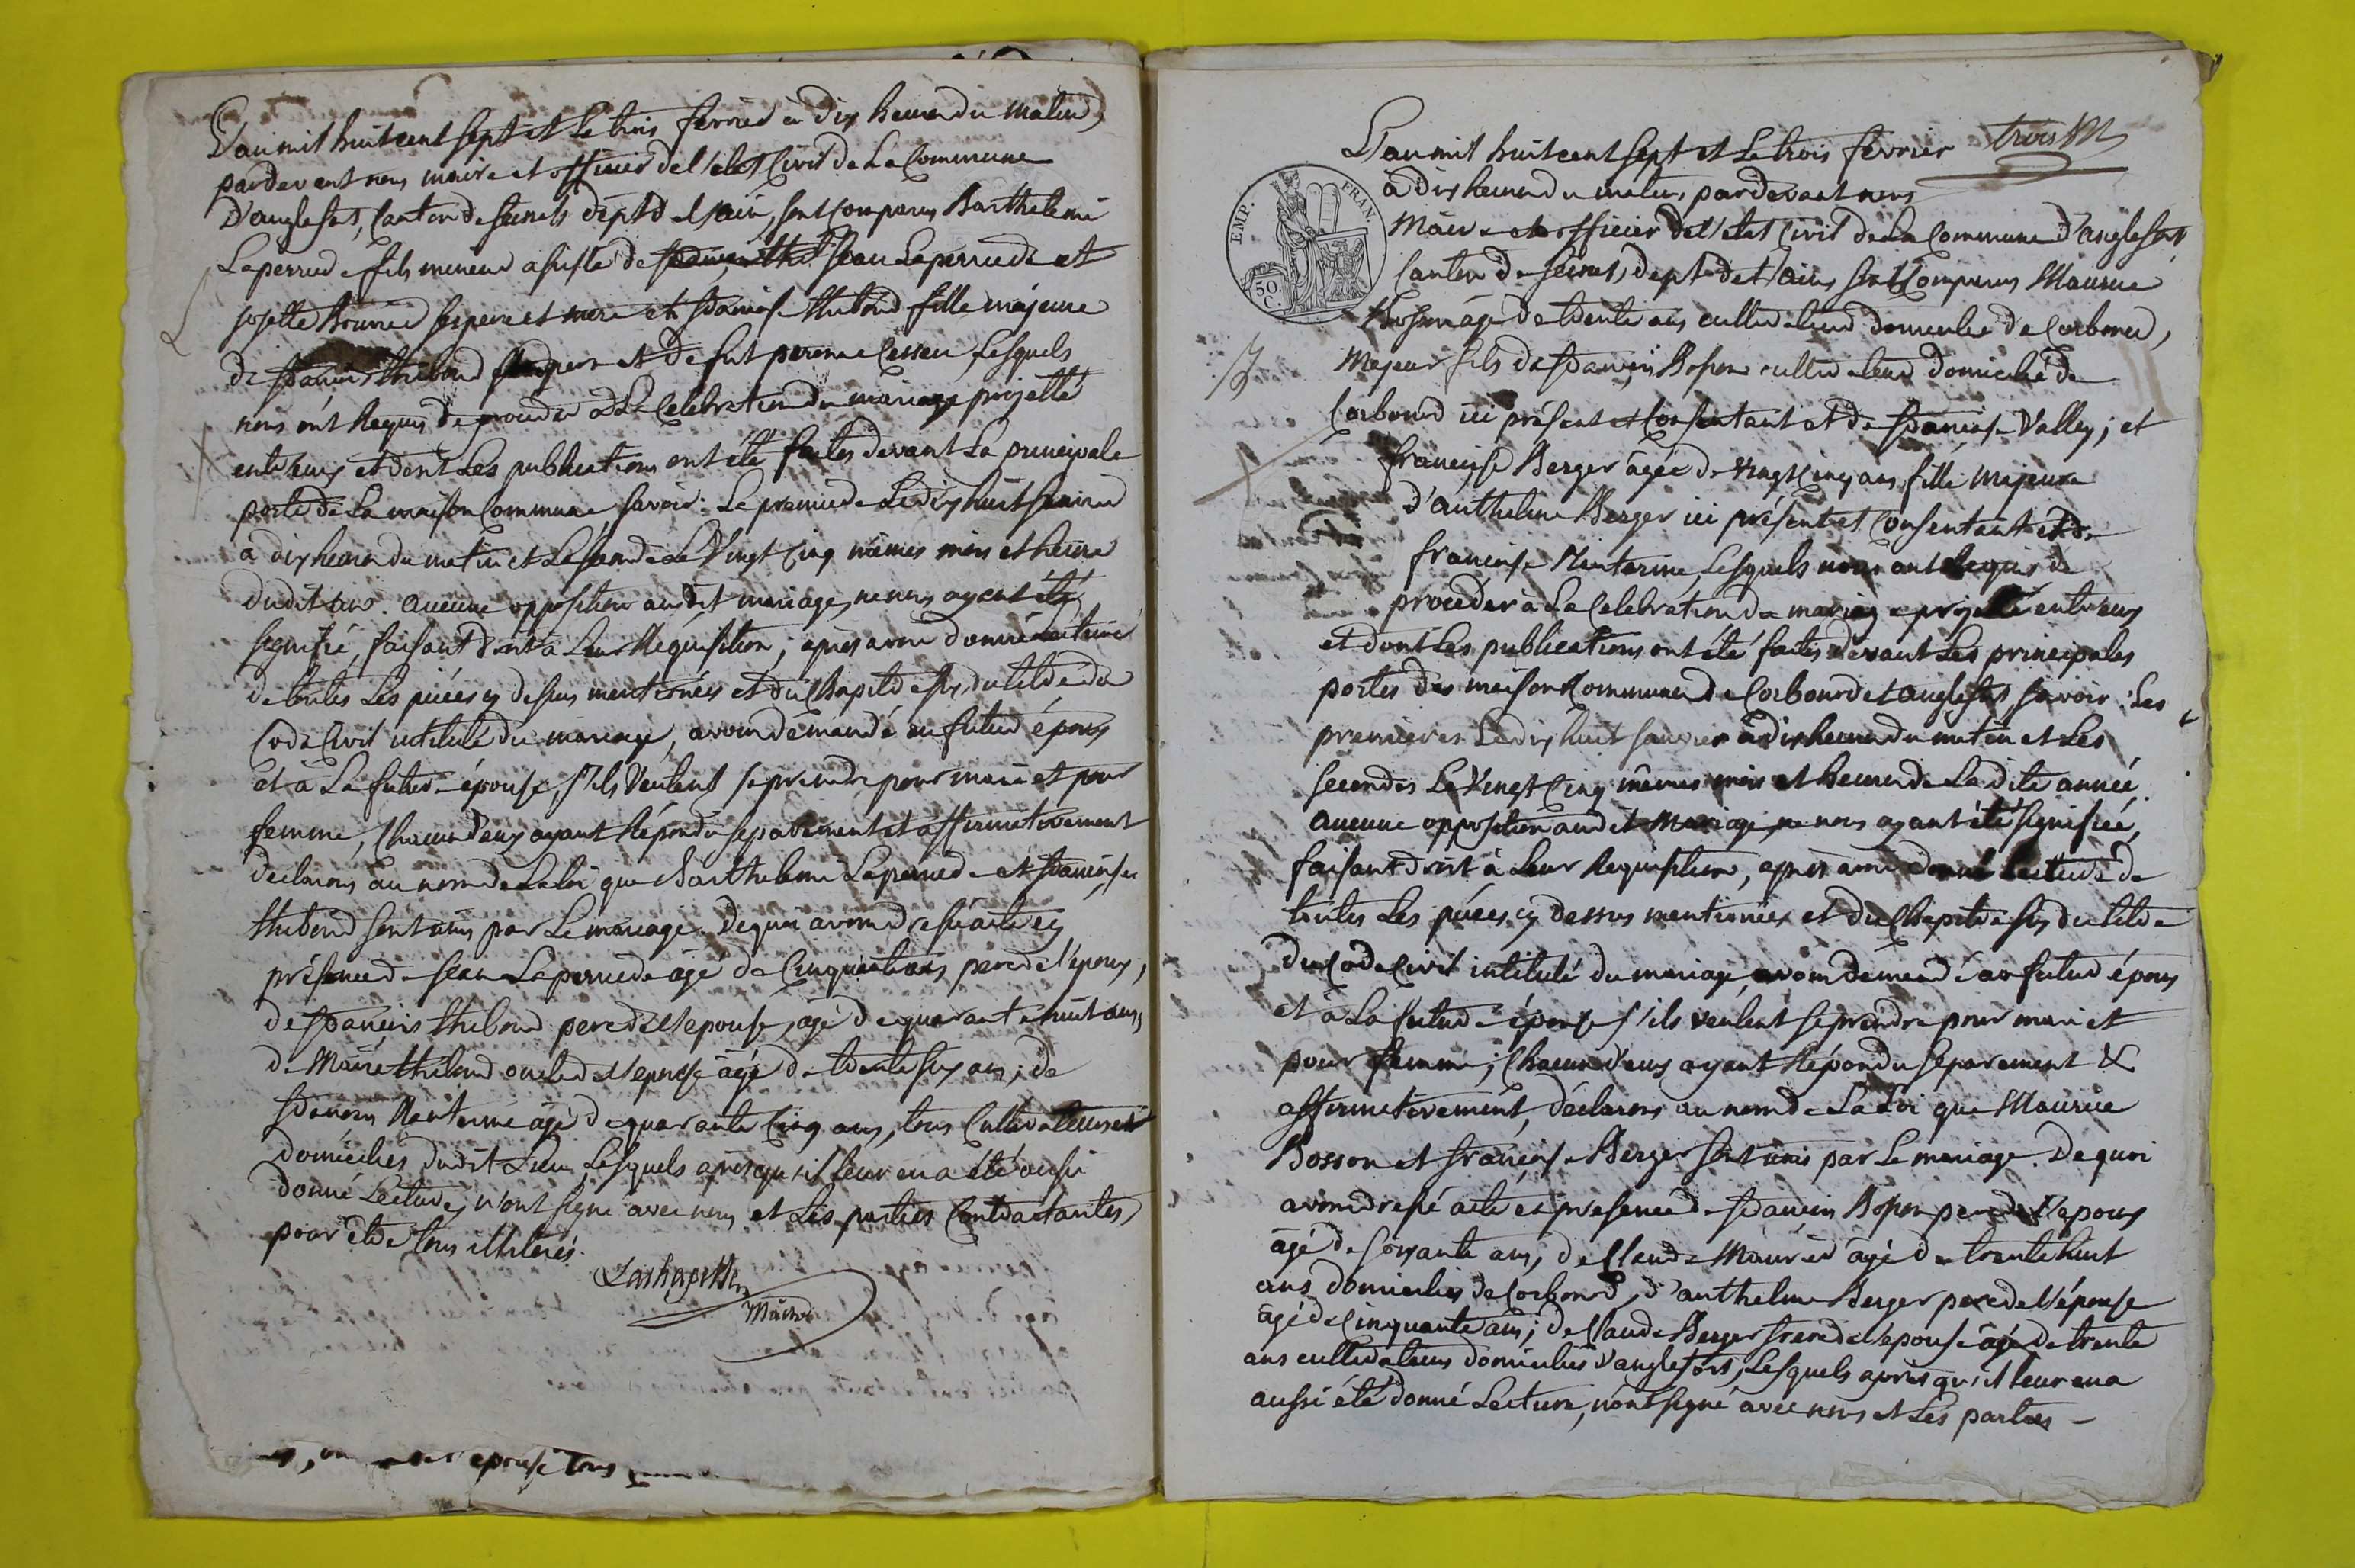 L'an mil huit cent sept et le trois fevrier à dix heures du matin,
pardevant nous maire et officier de l'etat Civil de La Commune
D'anglefort, Canton de seissel dépt de l'ain, sont Comparus Barthelemi
Laperrede fils mineur assisté de Jean Laperrede et
josette ses pere et mere et françoise thiboud fille majeure
de françois thiboud pere et de fut Lesquels
nous ont Requis de proceder à La Celebration du mariage projetté
entr'eux et dont Les publications ont été faites devant La principale
porte de La maison Commune, savoir: La premiere Le dix huit janvier
à dix heures du matin et La seconde Le Vingt Cinq mêmes mois et heure
dudit ans. aucune opposition audit mariage, ne nous ayant été
signifié, faisant droit à Leur Requisition; après avoir donné lecture
de toutes Les piéces cy dessus mentionées et du Chapitre six du titre du
Code Civil intitulé du mariage, avons démandé au futur époux
et à La future épouse, s'ils Veulent se prendre pour mari et pour
femme, Chacun d'eux ayant Répondu separément et affirmativement
declarons au nom de La loi que Barthelemi Laperrede et françoise
thiboud sont unis par Le mariage. De quoi avons dressé acte en
présence de jean Laperrede âgé de Cinquante ans, pere de l'époux,
de françois thiboud pere de l'epouse, âgé de quarante huit ans,
de thiboud oncle de l'epouse âgé de trente six ans, de
françois Montermé âgé de quarante Cinq ans, tous Cultivateurs et
domiciliés dudit Lieu, Lesquels après qu'il leur en a été aussi
donné Lecture, n'ont signé avec nous et Les parties Contractantes,
pour etre tous illiterés.
Lachapelle
Maire
epouse tous
L'an mil huit cent sept et Le trois fevrier
à dix heures du matin, pardevant nous
Maire et officier de l'etat Civil de La Commune d'anglefort
Canton de seissel, dept de l'ain, sont Comparus Maurice
Bosson âgé de trente ans cultivateur domicilié de Corbonod,
Majeur fils de françois Bosson cultivateur domicilié de
Corbonod ici présent et Consentant et de françoise Valley; et
françoise Berger âgée de Vingt Cinq ans, fille Majeure
d'anthelme Berger ici présent et Consentant et de
françoise Montermé, Lesquels nous ont Requis de
proceder à La Celebration du mariage projetté entr'eux
et dont Les publications ont été faites devant Les principales
portes des maisons Communes de Corbonod et anglefort, savoir: Les
premieres Le dix huit janvier à dix heures du matin et Les
secondes Le Vingt Cinq mêmes mois et heure de La dite année.
aucune opposition audit Mariage, ne nous ayant été signifiée,
faisant droit à Leur Requisition, après avoir donné Lecture de
toutes Les piéces cy dessus mentionées et du Chapitre six du titre
du Code Civil intitulé du mariage, avons demandé au futur époux
et à La future épouse s'ils veulent se prendre pour mari et
pour femme; Chacun d'eux ayant Répondu separement &
affirmativement, déclarons au nom de La Loi que Maurice
Bosson et françoise Berger sont unis par Le mariage. De quoi
avons dressé acte en presence de françois Bosson pere de l'epoux
âgé de soixante ans, de Claude Maurier âgé de trente huit
ans domiciliés de Corbonod, d'anthelme Berger pere de l'épouse
âgé de Cinquante ans; de Claude Berger frere de l'epouse âgé de trente
ans cultivateurs domiciliés d'anglefort, Lesquels après qu'il leur en a
aussi été donné Lecture, n'ont signé avec nous et Les parties –
EMP. FRAN.
50 C.